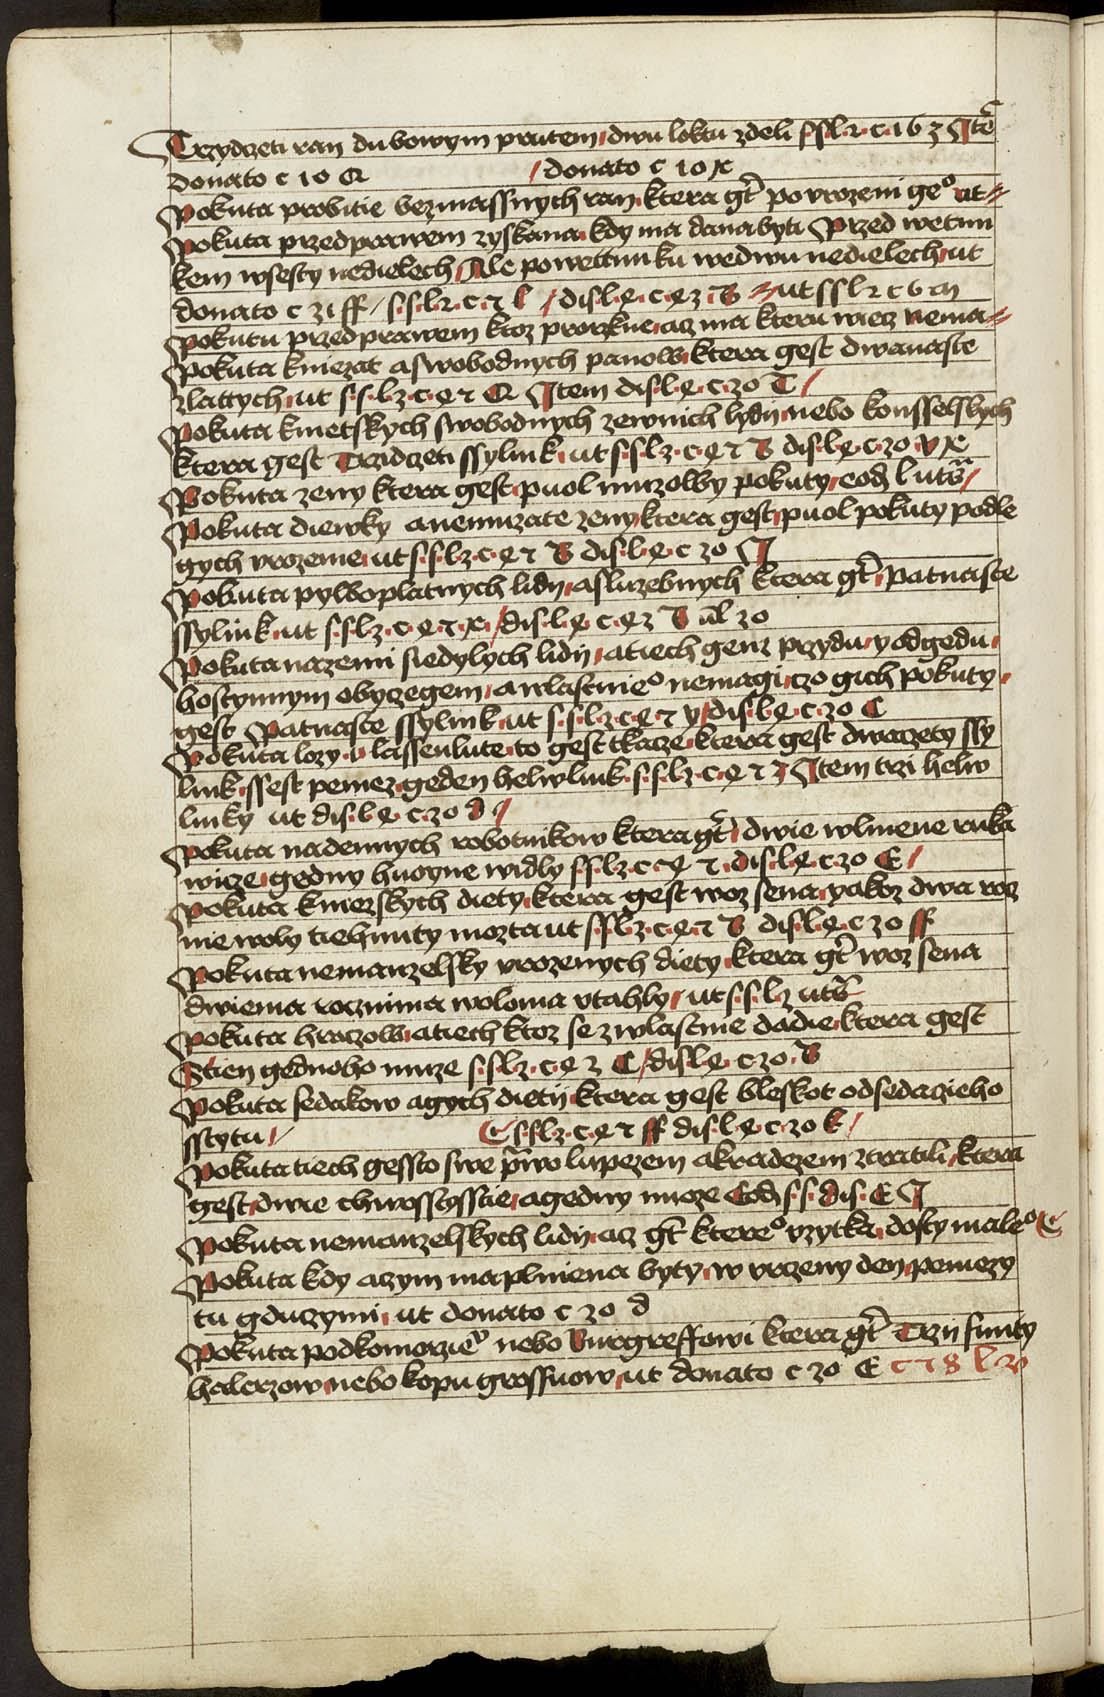 Trzydczeti ran dubowym prutem dwu loktu zdeli s s l 2 c 16 z Ite
donato c 10 Q / donato c 10 x
Pokuta probitie bezmassnych ran ktera gt po vrozeni geo ut
Pokuta przed prawem zyskana kdy ma dana byti Przed wettun
kem wsesty nedielech Ale powettunku wedwu nedielech ut
donato c 21 ff / s s l 2 c 7 l / dis l e c e z B ut s s l 2 c 6 m
Pokutu przed prawem ktoz prorzkne acz ma kteru wiecz nema
Pokuta kniezat a swobodnych panow ktera gest dwanaste
zlattych ut s s l z c e 7 Q Item dis l e c 20 T
Pokuta kmetskych swobodnych zewnich lydy nebo konsselskych
ktera gest Trzidczeti ssylink ut s s l z c e 7 B dis l e c 20 v x
Pokuta zeny ktera gest puol muzowy pokuty eod l uts
Pokuta diewky a nemuzate zeny ktera gest puol pokuty podle
gych vrozenie ut s s l z c e 7 B dis l e c 20 I
Pokuta pylboplatnych lidy a sluzebnych ktera gt Patnaste
ssylink ut s s l z c e 7 x / dis l e c e z B ul 20
Pokuta nazemi siedylych lidij a tiech genz przydu y odgedu
hostynnym obyczegem a wlastnieo nemagi czo gich pokuty
gest Patnaste ssylink ut s s l z c e 7 y dis l e c 20 C
Pokuta lozy lassenlute to gest tkacze ktera gest dwaczety ssy
link ssest peniez geden helwlink s s l z c e 7 z Item trzi helw
linky ut dis l e c 20 d
Pokuta nadennych robotnikow ktera gt dwie wlniene ruka
wicze gedny hnoyne widly s s l z c e 7 dis l e c 20 E
Pokuta knezskych diety ktera gest woz sena yakoz dwa rocz
nie woly tiehnuty mozta ut s s l z c e 7 B dis l e c 20 ff
Pokuta nemanzelsky vrozenych diety ktera gt woz sena
dwiema rocznima woloma vtahly ut s s l z uts
Pokuta hraczow a tiech ktoz se zwlastnie dadie ktera gest
Stien gednoho muze s s l z c e z C dis l e c 20 B
Pokuta sedakow a gych dietij ktera gest bleskot odsedacieho
sstytu / s s l z c e 7 ff dis l e c 20 k
Pokuta tiech gessto swe pwo lupezem a kradezem ztratili ktera
gest dwie chwossyssie a gedny nuoze Eod s s dis E I
Pokuta nemanzelskych lidij acz gt ktereo vzytka dosty maleo
Pokuta kdy a czym ma plniena byty w vrczeny den peniezy
tu gduczymi ut donato c 20 d
Pokuta podkomorzieo nebo Purgreffowi ktera gt Trzij funty
halerzow nebo kopu grossuow ut donato c 20 E c 7 8 l 20